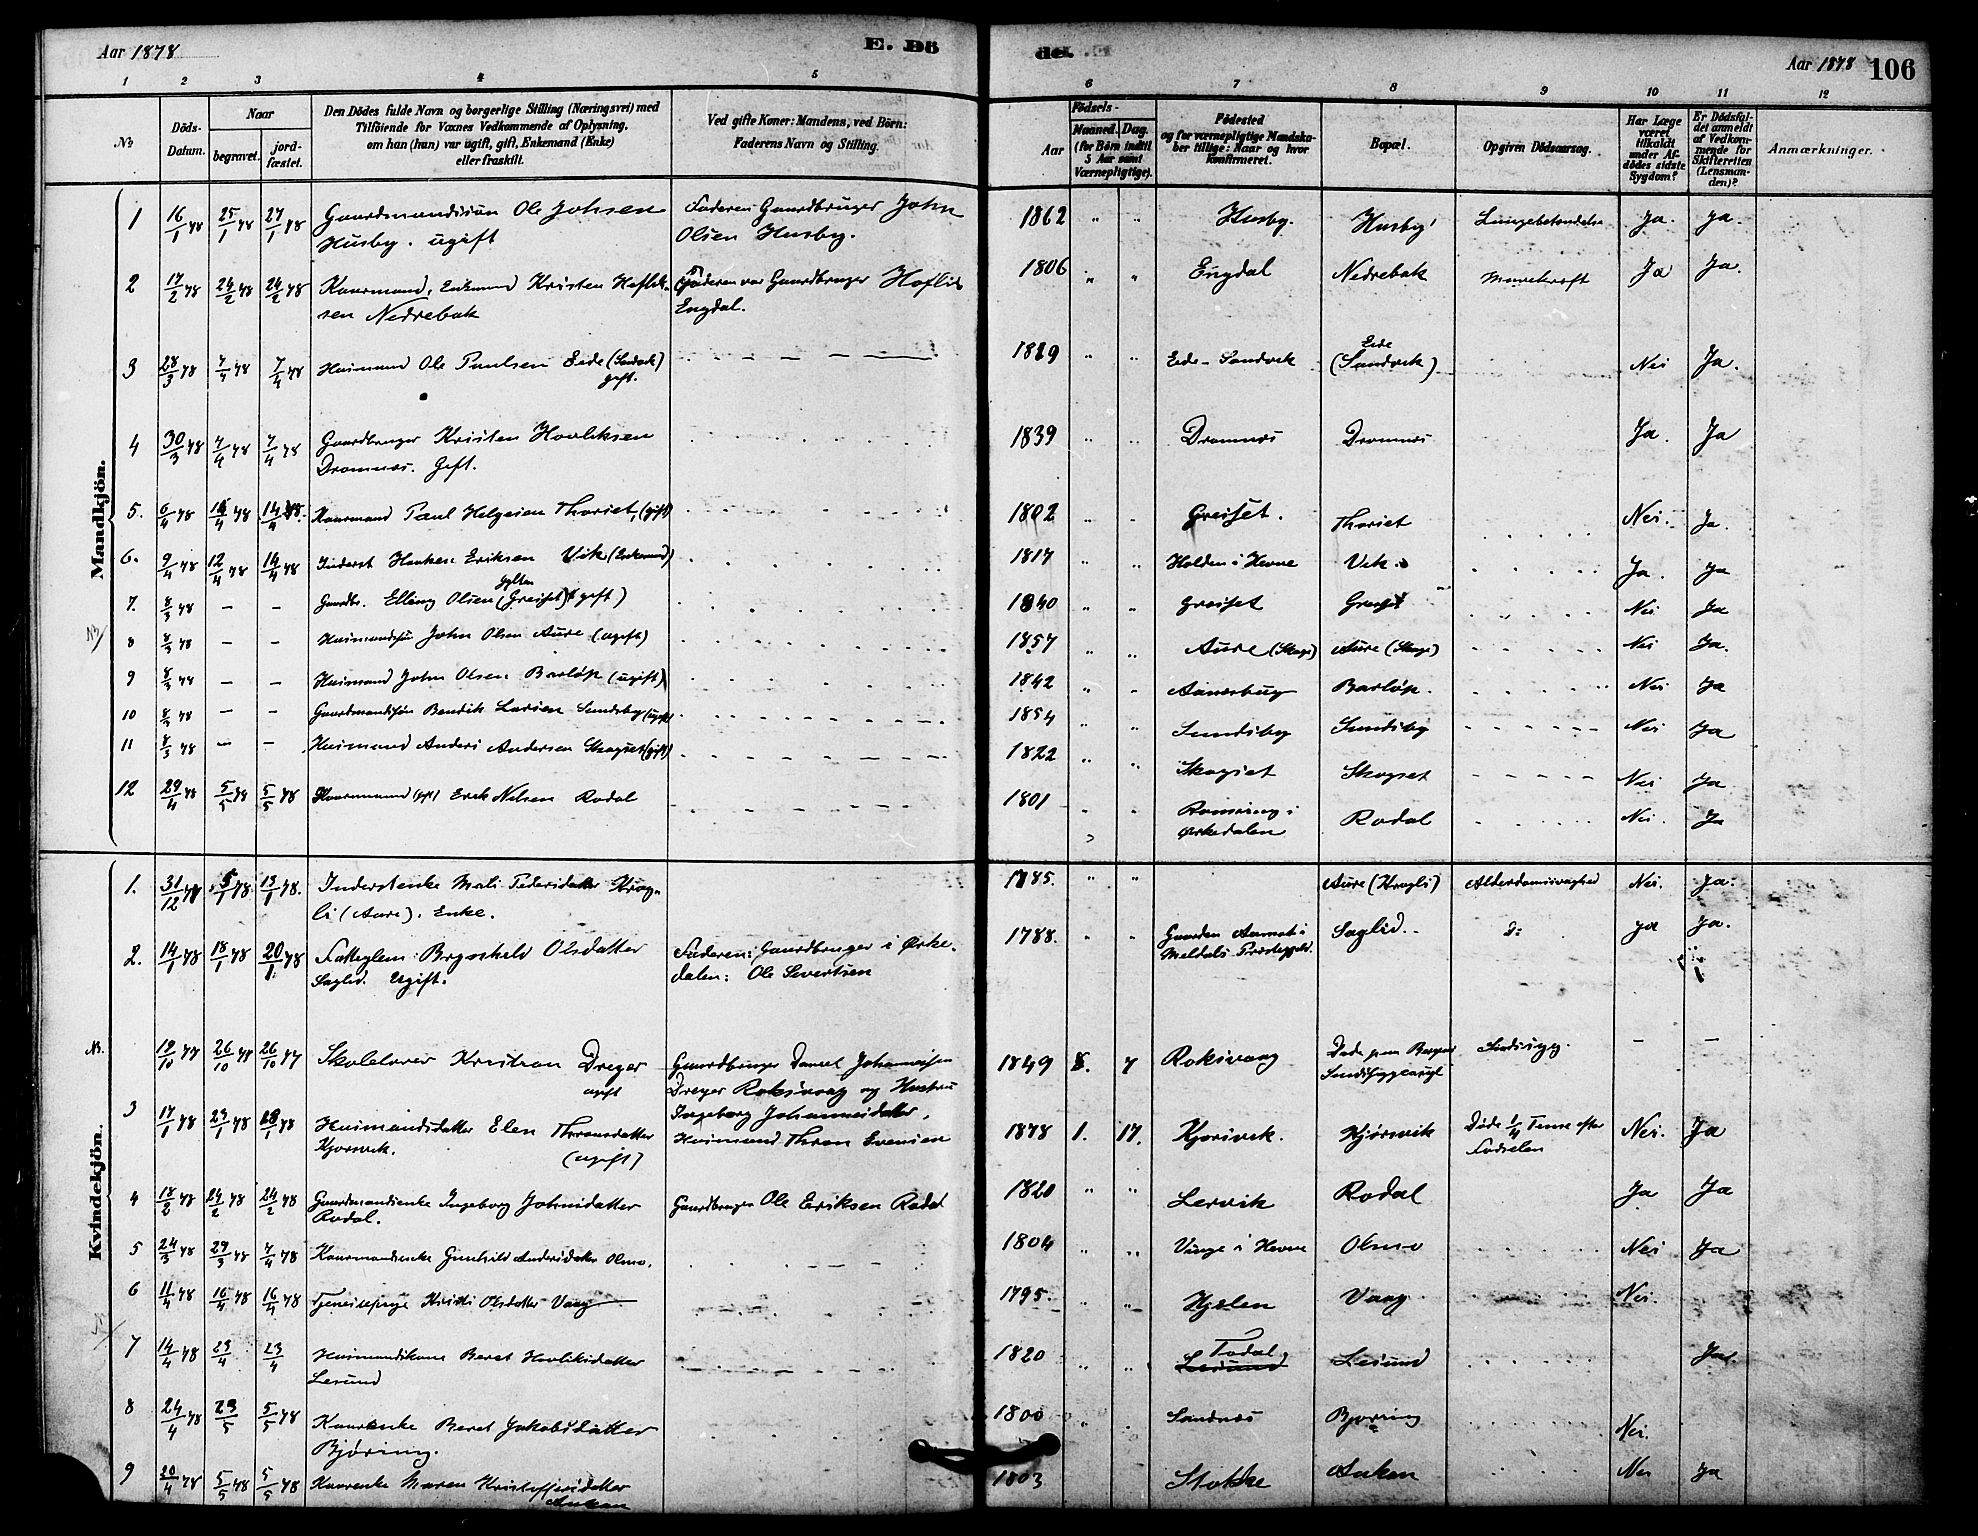 Aar 1878
E. Dö
de.
Aar 1878
106
1 2 3 4 5 6 7 8 9 10 11 12
No
Döds-Datum.
Naar
begravet.
jord-fæstet.
Den Dödes fulde Navn og borgerlige Stilling (Næringsvei) med
Tilföiende for Voxnes Vedkommende af Oplysning,
om han (hun) var ugift, gift, Enkemand (Enke)
eller fraskilt.
Ved gifte Koner: Mandens, ved Börn:
Faderens Navn og Stilling.
Födsels-
Aar
Maaned. Dag.
(for Börn indtil
5 Aar samt
Værnepligtige).
Födested
og for værnepligtige Mandska-
ber tillige: Naar og hvor
konfirmeret.
Bopæl.
Opgiven Dödsaarsag.
Har Læge
været
tilkaldt
under Af-
dödes sidste
Sygdom?
Er Dödsfal-
det anmeldt
af Vedkom-
mende for
Skifteretten
(Lensman-
den)?
Anmærkninger.
Mandkjön.
1 16/1 78 25/1 78 27/1 78 Gaardmandssøn Ole Johsen Faderen Gaardbruger John 1862 " " Husby. Husby Lungebetændelse Ja. Ja.
Husby. ugift Olsen Husby.
2 17/2 78 24/2 78 24/2 78 Kaarmand, Enkemand Kristen Haflik- Faderen var Gaardbruger Haflik 1806 " " Engdal Nedrebak Ja Ja.
sen Nedrebak Engdal.
3 28/3 78 7/4 78 7/4 78 Huusmand Ole Paulsen Eide (Sandvik) 1819 " " Eide - Sandvik Eide (Sandvik) Nei Ja.
gift.
4 30/3 78 7/4 78 7/4 78 Gaardbruger Kristen Havliksen 1839 " " Dromnes Dromnes Ja. Ja
Dromnes. Gift.
5. 6/4 78 14/4 78 14/4 78. Kaarmand Paul Helgesen Thorset, (gift) 1802 " " Greiset. Thorset Nei. Ja.
6. 9/4 78 12/4 78 14/4 78 Inderst Eriksen Vik (Enkemand) 1817 " " Holden i Hevne Vik. Ja. Ja
7. 8/3 78 – – Gaardbr. Elling Olsen (Greiset) (gift) 1840 " " Greiset Greiset Nei Ja
8 8/3 78 – – Huusmandssøn John Olsen Aure (ugift) 1857 " " Aure (Skage) Aure (Skage) Nei Ja.
9 8/3 78 – – Huusmand John Olsen Barløp (ugift) 1842 " " Barløp. Nei Ja
10 8/3 78 – – Gaardmandssøn Bendik Larsen Sundsby (ugift) 1854 " " Sundsby Sundsby Nei Ja
11 8/3 78 – – Huusmand Anders Andersen Skogset (gift) 1822 " " Skogset Skogset Nei Ja
12 29/4 78 5/5 78 5/5 78 Kaarmand (gift) Erik Nilsen Rodal 1801 " " i Rodal Nei. Ja
Ørkedalen
Kvindekjön.
1. 31/12 77 5/1 78. 13/1 78. Inderstenke Mali Pedersdatter Krog- 1785. " " Aure (Krogli) Alderdomssvaghed Nei. Ja.
li (Aure). Enke.
2. 14/1 78 18/1 78 20/1 78 Fattiglem Brynhild Olsdatter Faderen: Gaardbruger i Ørke- 1788. " " Gaarden Aamot i Saglid. do Ja Ja.
Saglid. Ugift. dalen: Ole Sivertsen Meldals Præstegjeld.
19/10 77 26/10 77 26/10 77 Skolelærer Kristian Dreyer Gaardbruger Daniel Johannesen 1849 8. 7 Roksvaag Døde paa Bergens Sindssyg. – –
ugift Dreyer Roksvaag og Hustru Sindssygeasyl
Ingeborg Johannesdatter.
3 17/1 78 23/1 78 28/1 78 Huusmandsdatter Elen Thronsdatter Huusmand Thron Evensen 1878 1. 17. Kjørsvik. Kjørsvik Døde 1/4 Time efter Nei. Ja
Kjørsvik. (ugift) Fødselen
4 18/2 78 24/2 78 24/2 78 Gaardmandsenke Ingeborg Johnsdatter Gaardbruger Ole Eriksen Rodal 1820 " " Lervik Rodal Ja Ja
Rodal.
5 24/3 78 29/3 78 7/4 78 Kaarmandsenke Gunhild Andersdatter Olmo. 1804 " " Vinge i Hevne Olmo Nei Ja
6 11/4 78 16/4 78 16/4 78 Tjenestepige Kristi Olsdatter Vaag 1795. " " Hjelen Vaag Nei.
7 14/4 78 23/4 23/4 Huusmandskone Beret Havliksdatter 1820 " " Todal Lesund Lesund Ja.
Lesund
8 24/4 78 29/5 5/5 78 Kaarenke Beret Jakobsdatter 1800 " " Sandnes Bjøring Nei.
Bjøring.
9 20/4 78 5/5 78 5/5 78 Kaarenke Maren Kristoffersdatter 1803 Stokke Anken Nei Ja
Anken